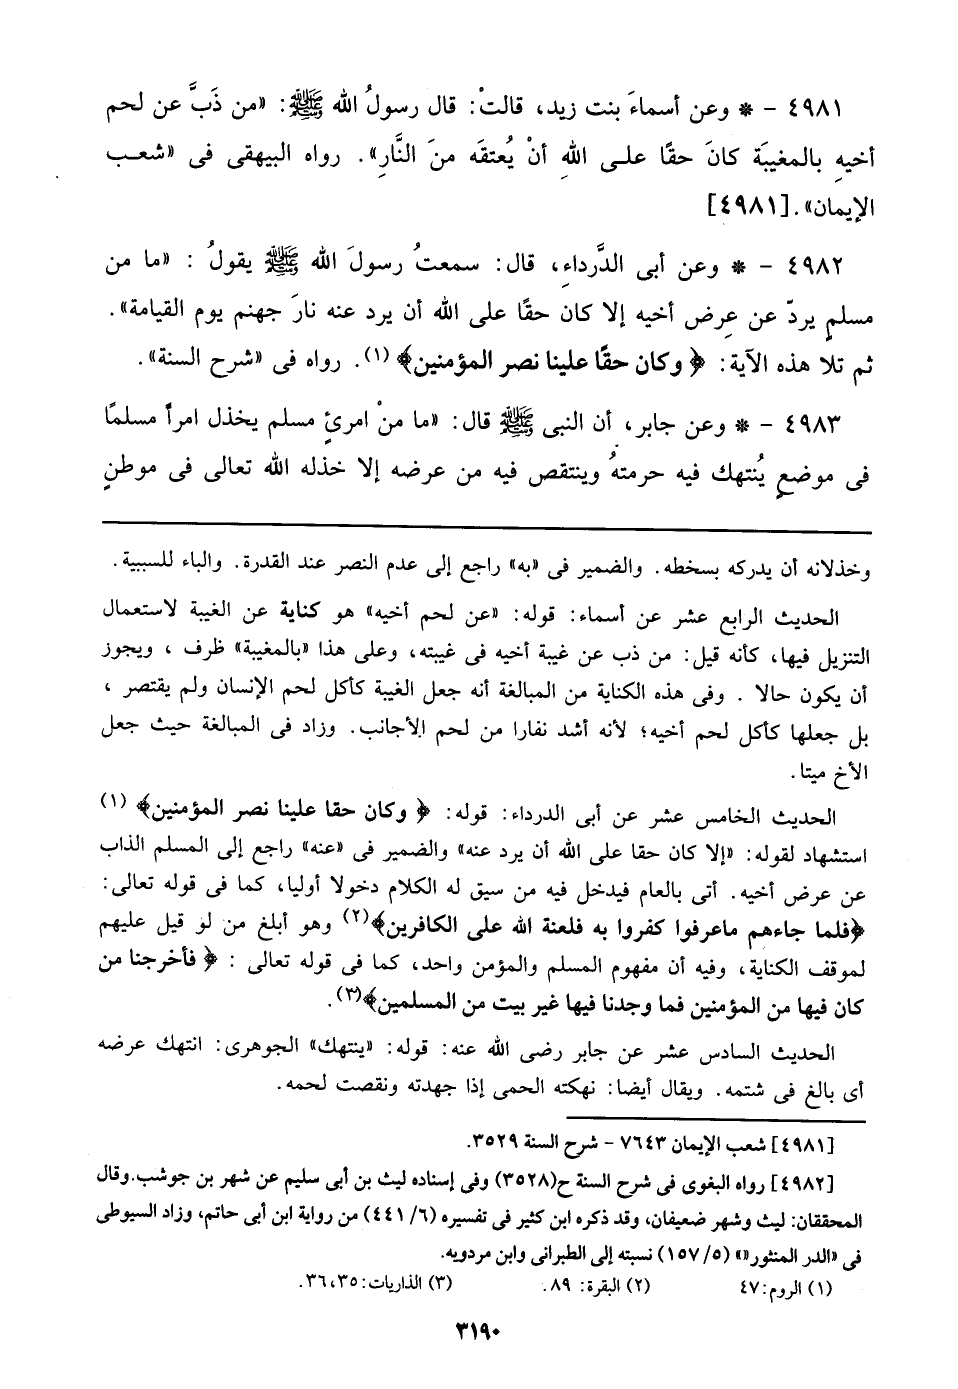 ٤٩٨١ – * وعن أسماءَ بنت زيد، قالتْ: قال رسولُ الله ﷺ: «من ذَبَّ عن لحم
أخيهِ بالمغيبَة كانَ حقًا علـى اللهِ أنْ يُعتقَه منَ النَّارِ». رواه البيهقى فى «شعـب
الإيمان».[٤٩٨١]
٤٩٨٢ – * وعن أبى الدَّرداءِ، قال: سمعتُ رسولَ الله ﷺ يقولُ : «ما من
مسلمٍ يردّ عن عِرض أخيه إلا كان حقًا على الله أن يرد عنه نارَ جهنم يوم القيامة».
ثم تلا هذه الآية: ﴿ وكان حقًا علينا نصر المؤمنين﴾ (١). رواه فى «شرح السنة».
٤٩٨٣ – * وعن جابر، أن النبى ﷺ قال: «ما منْ امرئٍ مسلم يخذل امرأً مسلمًا
فى موضعٍ يُنتهك فيه حرمتهُ وينتقص فيه من عرضه إلا خذله الله تعالى فى موطنٍ
وخذلانه أن يدركه بسخطه. والضمير فى «به» راجع إلى عدم النصر عند القدرة. والباء للسببية.
الحديث الرابع عشر عن أسماء: قوله: «عن لحم أخيه» هو كناية عن الغيبة لاستعمال
التنزيل فيها، كأنه قيل: من ذب عن غيبة أخيه فى غيبته، وعلى هذا «بالمغيبة» ظرف ، ويجوز
أن يكون حالا . وفى هذه الكناية من المبالغة أنه جعل الغيبة كأكل لحم الإنسان ولم يقتصر ،
بل جعلها كأكل لحم أخيه؛ لأنه أشد نفارا من لحم الأجانب. وزاد فى المبالغة حيث جعل
الأخ ميتا.
الحديث الخامس عشر عن أبى الدرداء: قوله: ﴿ وكان حقا علينا نصر المؤمنين﴾ (١)
استشهاد لقوله: «إلا كان حقا على الله أن يرد عنه» والضمير فى «عنه» راجع إلى المسلم الذاب
عن عرض أخيه. أتى بالعام فيدخل فيه من سيق له الكلام دخولا أوليا، كما فى قوله تعالى:
﴿فلما جاءهم ماعرفوا كفروا به فلعنة الله على الكافرين﴾(٢) وهو أبلغ من لو قيل عليهم
لموقف الكناية، وفيه أن مفهوم المسلم والمؤمن واحد، كما فى قوله تعالى : ﴿ فأخرجنا من
كان فيها من المؤمنين فما وجدنا فيها غير بيت من المسلمين﴾(٣).
الحديث السادس عشر عن جابر رضى الله عنه: قوله: «ينتهك» الجوهرى: انتهك عرضه
أى بالغ فى شتمه. ويقال أيضا: نهكته الحمى إذا جهدته ونقصت لحمه.
[٤٩٨١] شعب الإيمان ٧٦٤٣ – شرح السنة ٣٥٢٩.
[٤٩٨٢] رواه البغوى فى شرح السنة ح(٣٥٢٨) وفى إسناده ليث بن أبى سليم عن شهر بن جوشب.وقال
المحققان: ليث وشهر ضعيفان، وقد ذكره ابن كثير فى تفسيره (٦/ ٤٤١) من رواية ابن أبى حاتم، وزاد السيوطى
فى «الدر المنثور»» (٥/ ١٥٧) نسبته إلى الطبرانى وابن مردويه.
(١) الروم:٤٧ (٢) البقرة: ٨٩. (٣) الذاريات:٣٦،٣٥.
٣١٩٠